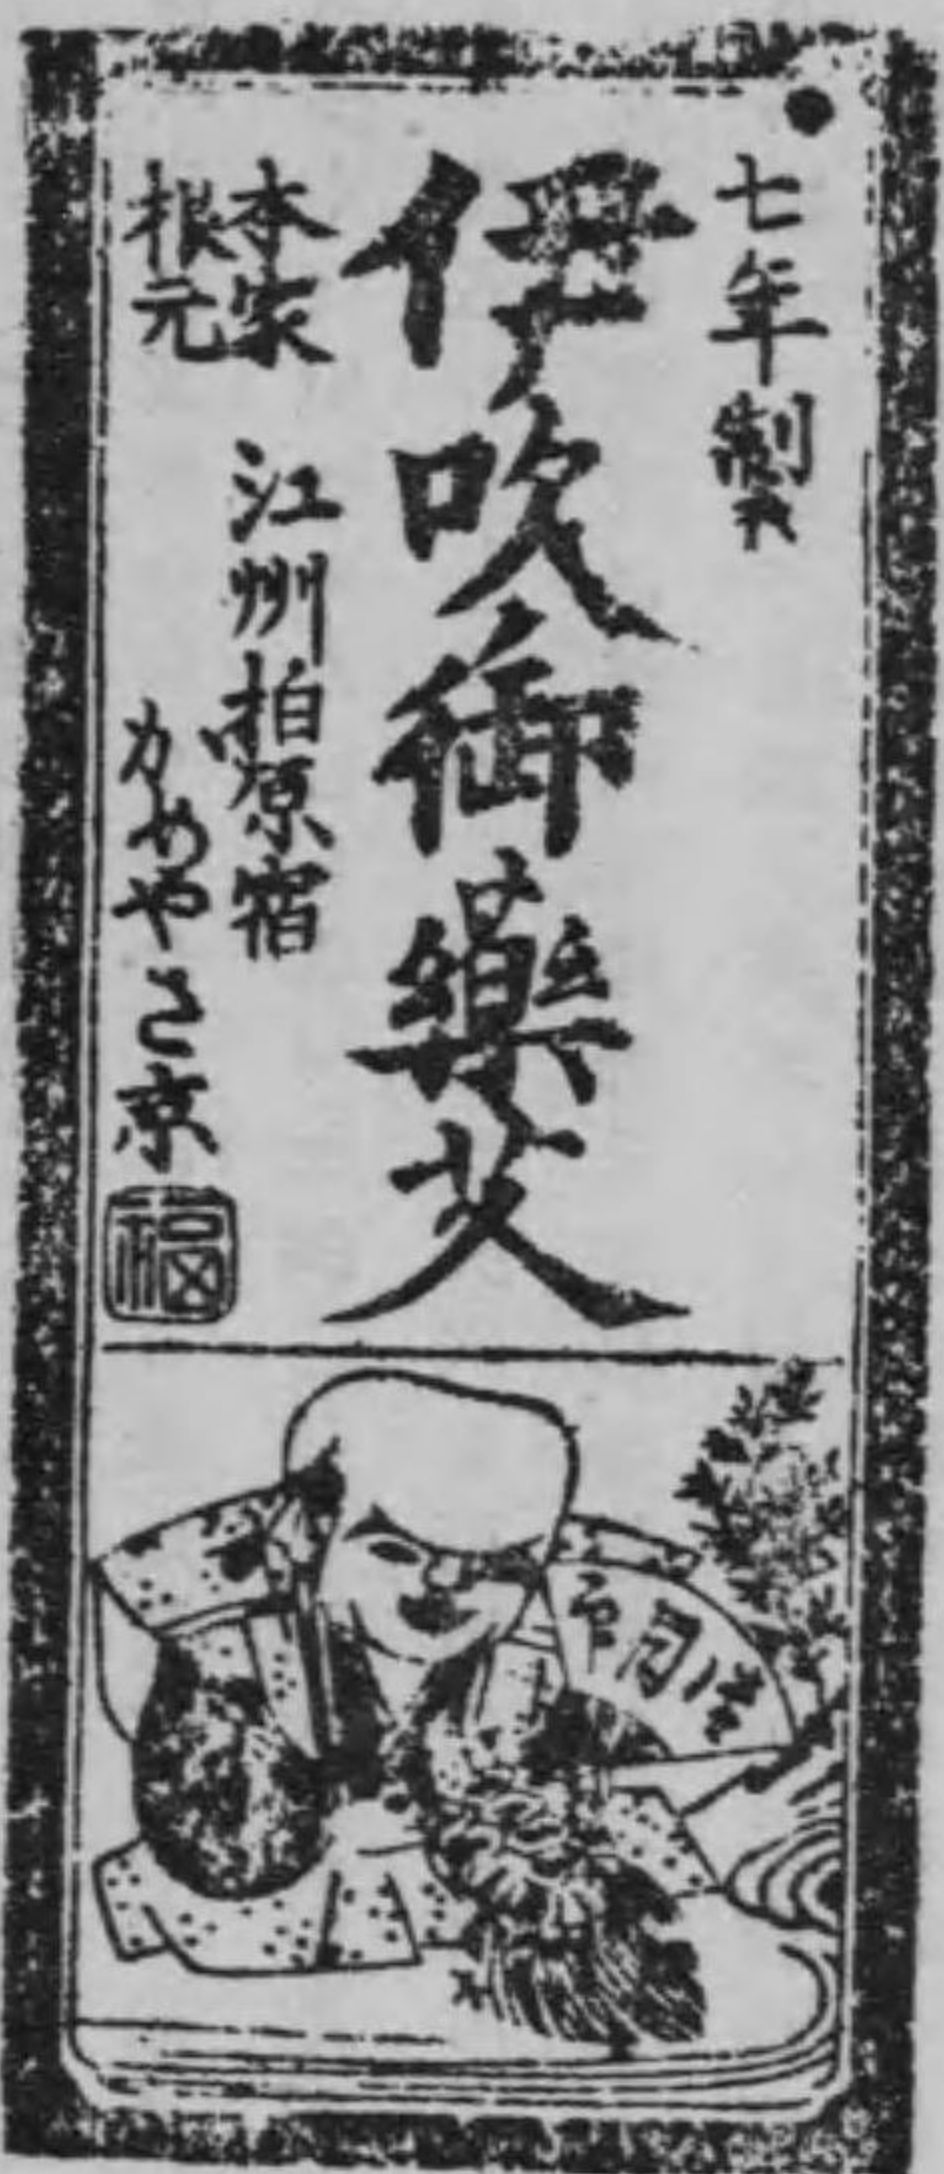 七年製
伊吹御藥艾
本家
根元
江州柏原宿
かめやさ京
福